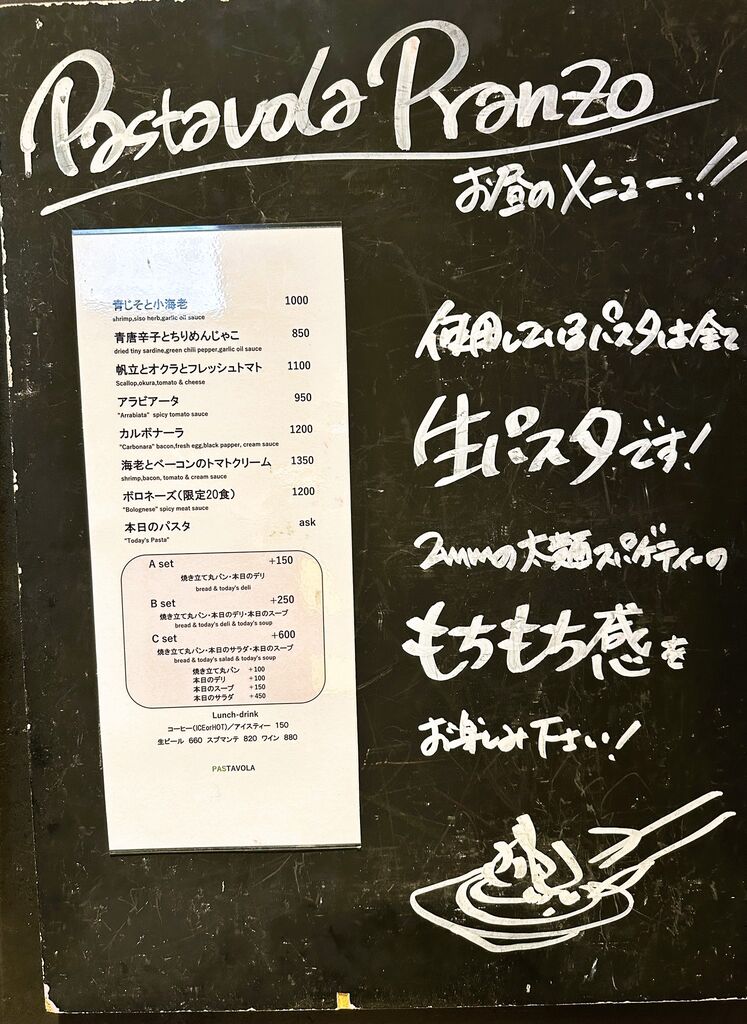 Pastavola Pranzo
お昼のメニュー..!!
青じそと小海老 1000
shrimp,siso herb,garlic oil sauce
青唐辛子とちりめんじゃこ 850
dried tiny sardine,green chili pepper,garlic oil sauce
帆立とオクラとフレッシュトマト 1100
Scallop,okura,tomato & cheese
アラビアータ 950
"Arrabiata" spicy tomato sauce
カルボナーラ 1200
"Carbonara" bacon,fresh egg,black papper, cream sauce
海老とベーコンのトマトクリーム 1350
shrimp,bacon, tomato & cream sauce
ボロネーズ(限定20食) 1200
"Bolognese" spicy meat sauce
本日のパスタ ask
"Today's Pasta"
A set +150
焼き立て丸パン・本日のデリ
bread & today's deli
B set +250
焼き立て丸パン・本日のデリ・本日のスープ
bread & today's deli & today's soup
C set +600
焼き立て丸パン・本日のサラダ・本日のスープ
bread & today's salad & today's soup
焼き立て丸パン +100
本日のデリ +100
本日のスープ +150
本日のサラダ +450
Lunch-drink
コーヒー(ICEorHOT)/アイスティー 150
生ビール 660 スプマンテ 820 ワイン 880
PASTAVOLA
使用しているパスタは全て
生パスタです!
2mmの太麺スパゲティーの
もちもち感を
お楽しみ下さい!